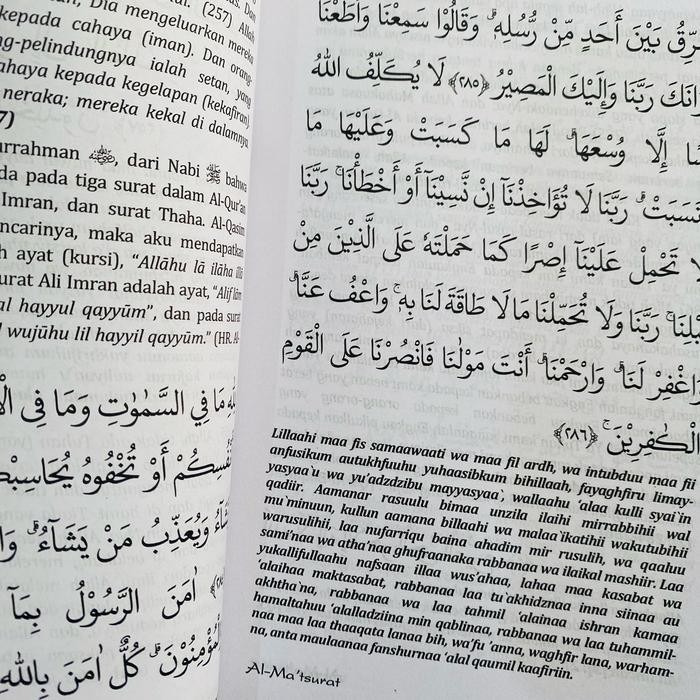 (257) Allah
Dia mengeluarkan mereka
kepada cahaya (iman). Dan orang-
pelindungnya ialah setan, yang
cahaya kepada kegelapan (kekafiran)
neraka; mereka kekal di dalamnya
7)
urrahman ﵁, dari Nabi ﷺ bahwa
da pada tiga surat dalam Al-Qur'an
Imran, dan surat Thaha. Al-Qasim
ncarinya, maka aku mendapatkan
h ayat (kursi), "Allāhu lā ilāha illā
urat Ali Imran adalah ayat, "Alif lām
al hayyul qayyūm", dan pada surat
l wujūhu lil hayyil qayyūm." (HR. Al-
مَا فِي السَّمٰوٰتِ وَمَا فِى
أَوْ تُخْفُوهُ
وَيُعَذِّبُ مَنْ يَشَآءُ ۗ
اٰمَنَ الرَّسُوْلُ بِمَآ
كُلٌّ اٰمَنَ بِاللّٰهِ
بَيْنَ أَحَدٍ مِّنْ رُّسُلِهٖ ۗ وَقَالُوْا سَمِعْنَا وَأَطَعْنَا
رَبَّنَا وَإِلَيْكَ الْمَصِيْرُ ﴿٢٨٥﴾ لَا يُكَلِّفُ اللّٰهُ
إِلَّا وُسْعَهَا ۗ لَهَا مَا كَسَبَتْ وَعَلَيْهَا مَا
رَبَّنَا لَا تُؤَاخِذْنَآ إِنْ نَّسِيْنَآ أَوْ أَخْطَأْنَا ۚ رَبَّنَا
تَحْمِلْ عَلَيْنَآ إِصْرًا كَمَا حَمَلْتَهٗ عَلَى الَّذِيْنَ مِنْ
رَبَّنَا وَلَا تُحَمِّلْنَا مَا لَا طَاقَةَ لَنَا بِهٖ ۚ وَاعْفُ عَنَّا ۗ
وَاغْفِرْ لَنَا ۗ وَارْحَمْنَا ۗ أَنْتَ مَوْلٰىنَا فَانْصُرْنَا عَلَى الْقَوْمِ
الْكٰفِرِيْنَ ۚ ﴿٢٨٦﴾
Lillaahi maa fis samaawaati wa maa fil ardh, wa intubduu maa fii
anfusikum autukhfuuhu yuhaasibkum bihillaah, fayaghfiru limay-
yasyaa`u wa yu'adzdzibu mayyasyaa`, wallaahu 'alaa kulli syai`in
qadiir. Aamanar rasuulu bimaa unzila ilaihi mirrabbihii wal
mu`minuun, kullun aamana billaahi wa malaa`ikatihii wakutubihii
warusulihii, laa nufarriqu baina ahadim mir rusulih, wa qaaluu
sami'naa wa atha'naa ghufraanaka rabbanaa wa ilaikal mashiir. Laa
yukallifullaahu nafsaan illaa wus'ahaa, lahaa maa kasabat wa
'alaihaa maktasabat, rabbanaa laa tu`akhidznaa inna siinaa au
akhtha`na, rabbanaa wa laa tahmil 'alainaa ishran kamaa
hamaltahuu 'alalladziina min qablinaa, rabbanaa wa laa tuhammil-
naa maa laa thaaqata lanaa bih, wa'fu 'anna, waghfir lana, warham-
na, anta maulaanaa fanshurnaa 'alal qaumil kaafiriin.
Al-Ma'tsurat